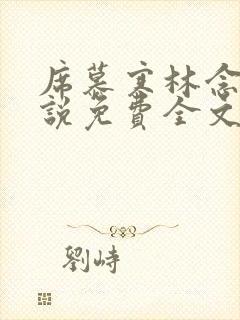 席慕寒林念
說免費全文
劉峙